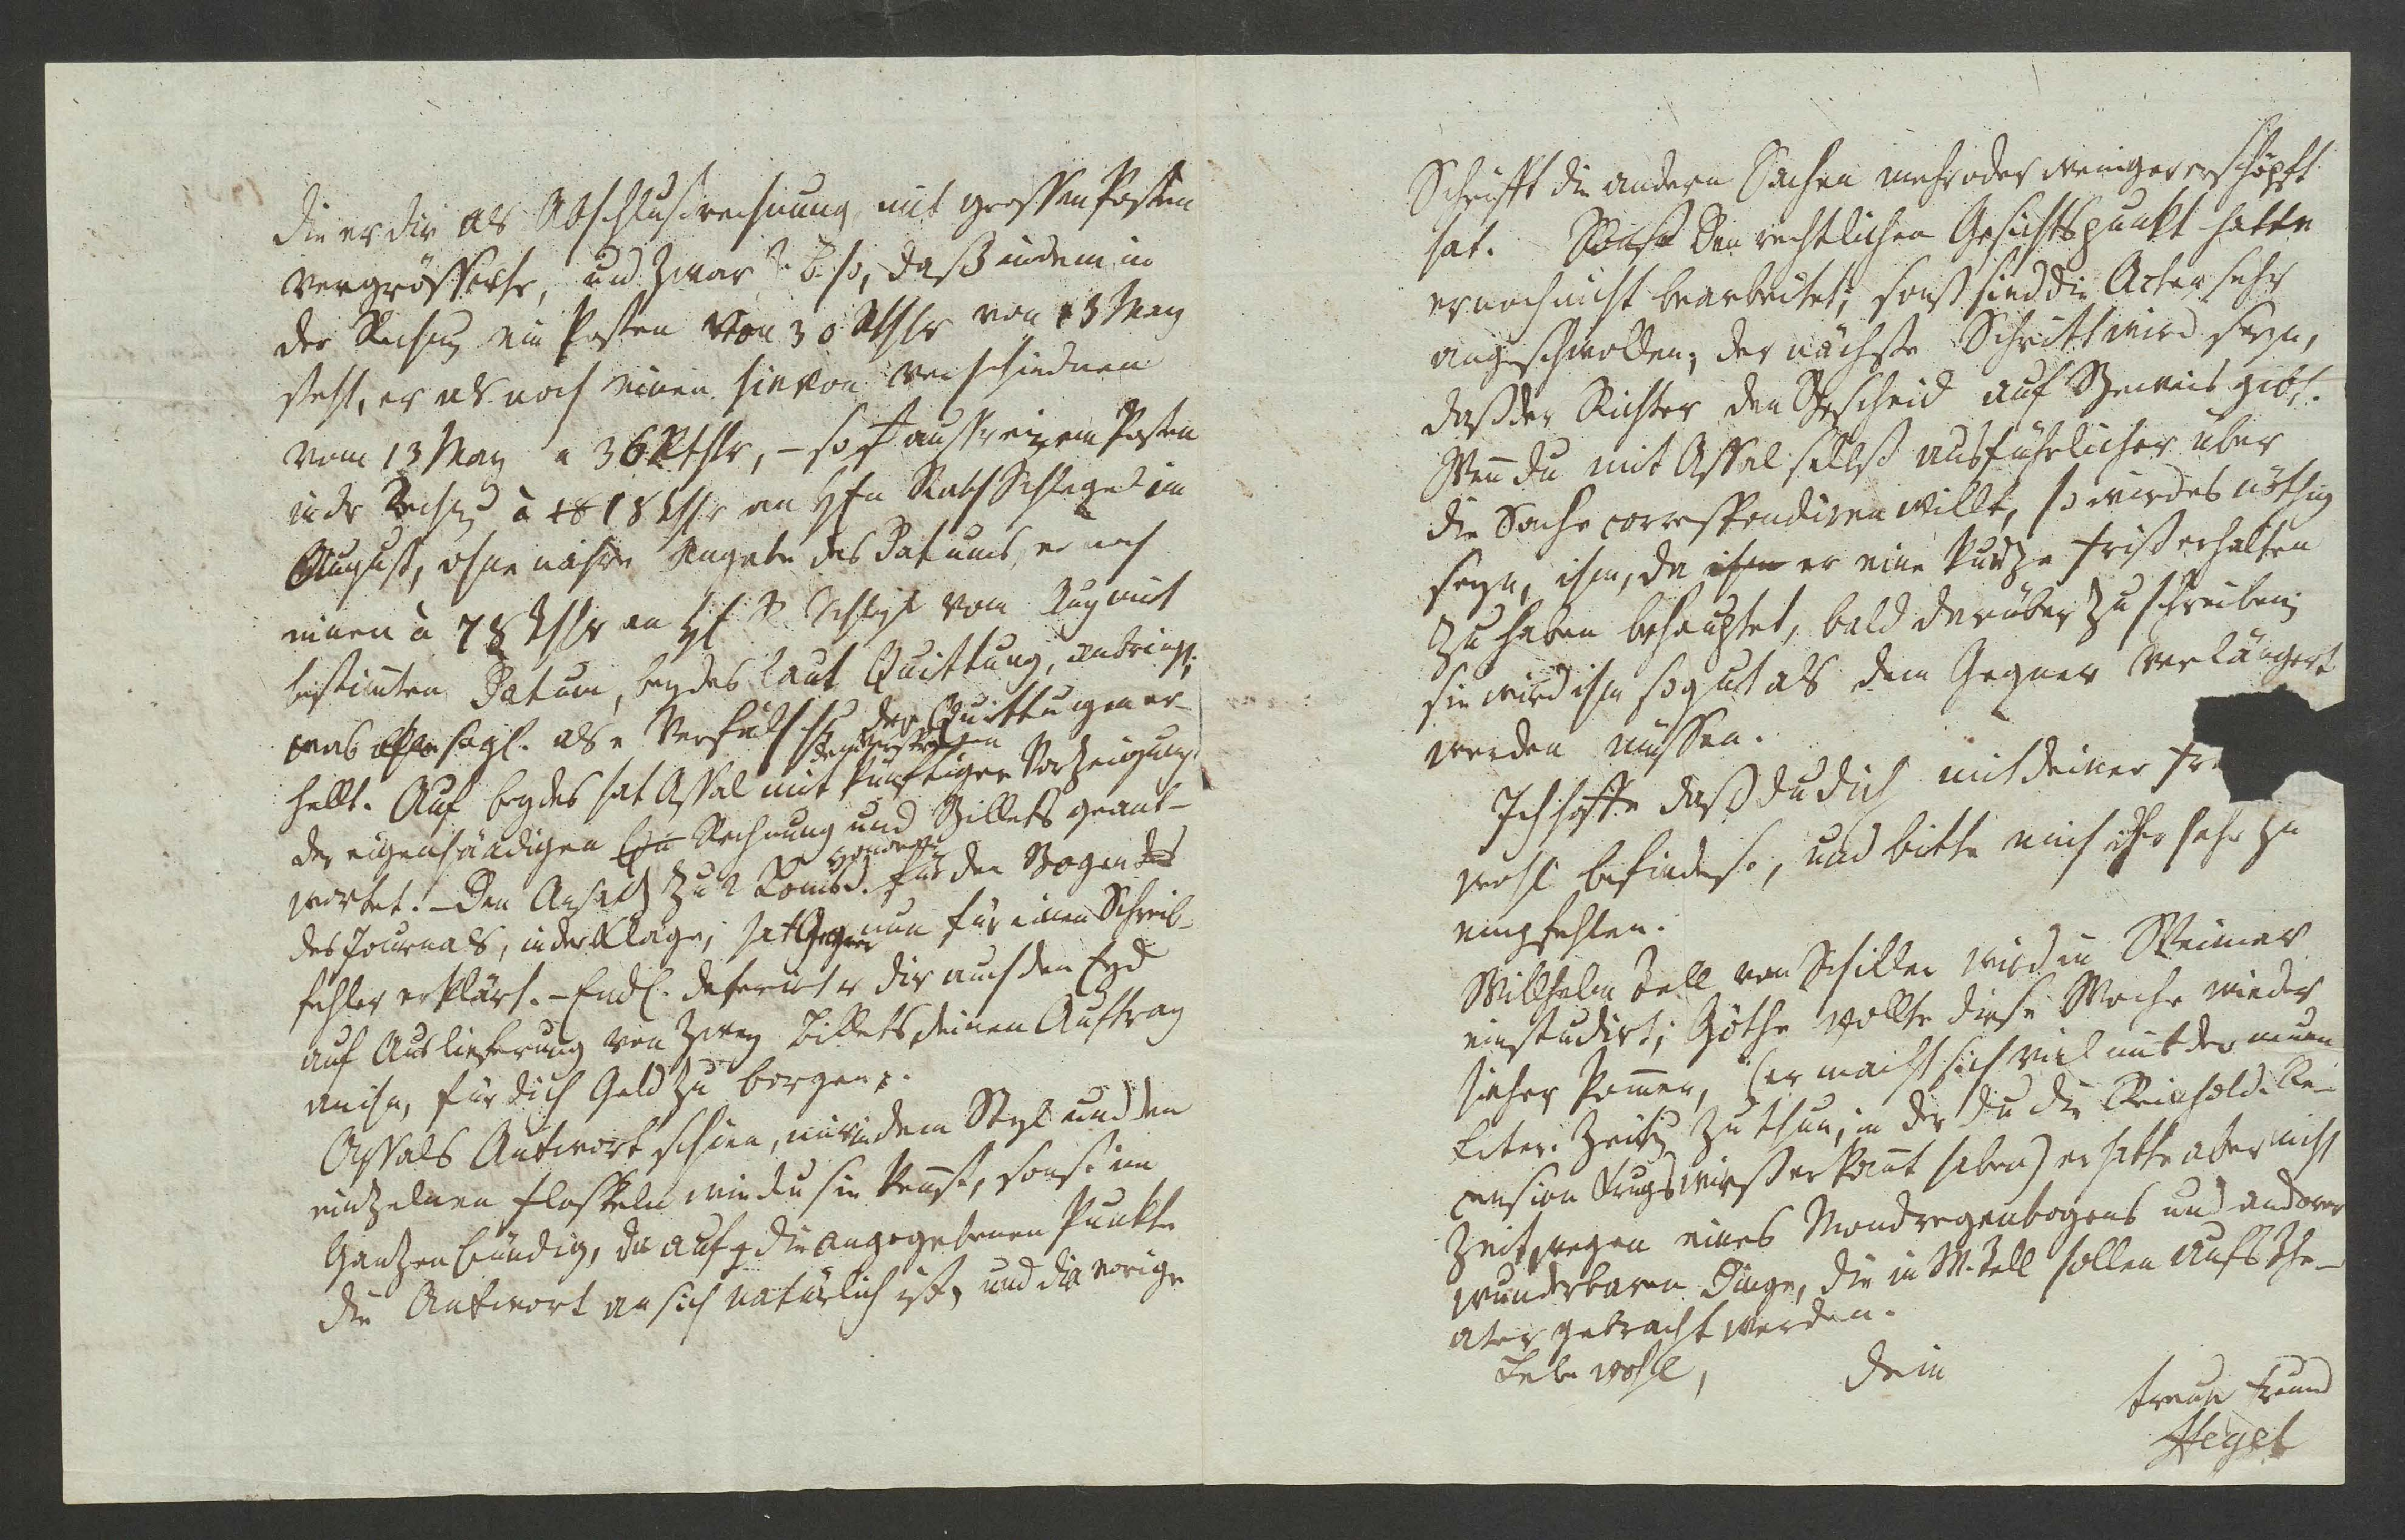 die er dir als Abschlußrechnung, mit grossen Posten
vergrösserte, und zwar z. B. so, daß indem in
der Rechng ein Posten von 30 Rthlr von 13 May
steht, er als noch einen hievon verschiednen
vom 13 May a 36 Rthlr, – so ausser einem Posten
in dr Rechng à 18 Rthlr an Hn Rath Schlegel im
August, ohne nähre Angabe des Datums, er noch
einen à 78 Rthlr an H R Schlegel vom Aug mit
bestimten Datum, beydes laut Quittung, anbringt;
was sogl. als Verfälsch der Quittungen er-
hellt. Auf beydes hat Assal mit künftiger Vorzeigung
der eigenhändigen Rechnung und Billets geant-
wortet. – Den Ansatz zu 2 Louisd. für den Bogen
des Journals, in der Klage, hat Gegner nun für einen Schreib-
fehler erklärt. – Endl. deferirt er dir auch den Eyd
auf Auslieferung von zwey Billets, deinen Auftrag
an ihn, für dich Geld zu borgen.
Assals Antwort schien mir, in dem Styl und den
einzelnen Floskeln wie du sie kennst, sonst im
Ganzen bündig, da auf die angegebenen Punkte
die Antwort an sich natürlich ist, und die vorige
Schrifft die andern Sachen mehr oder weniger erschöpft
hat. Den rechtlichen Gesichtspunkt hatte
er noch nicht bearbeitet; sonst sind die Acten sehr
angeschwollen; der nächste Schritt wird seyn,
daß der Richter den Bescheid auf Beweis gibt.
Wenn du mit Assal selbst ausführlicher über
die Sache correspondiren willt, so wird es nöthig
seyn, ihm, da er eine kurze Frist erhalten
zu haben behauptet, bald darüber zu schreiben;
sie wird ihm so gut als dem Gegner verlängert
werden müssen.
Ich hoffe daß du dich mit deiner
wohl befindest, und bitte mich ihr sehr zu
empfehlen.
Willhelm Tell von Schiller wird in Weimar
einstudirt; Göthe wollte diese Woche wieder
hieher kommen, (er macht sich viel mit der neuen
Liter. Zeitg zu thun, in der du die Reinhold. Re-
cension Krugs wirst erkannt haben) er hatte aber nicht
Zeit, wegen eines Mondregenbogens und anderer
wunderbaren Dinge, die in W. Tell sollen aufs The-
ater gebracht werden.
Lebe wohl, dein
treuer Freund
Hegel